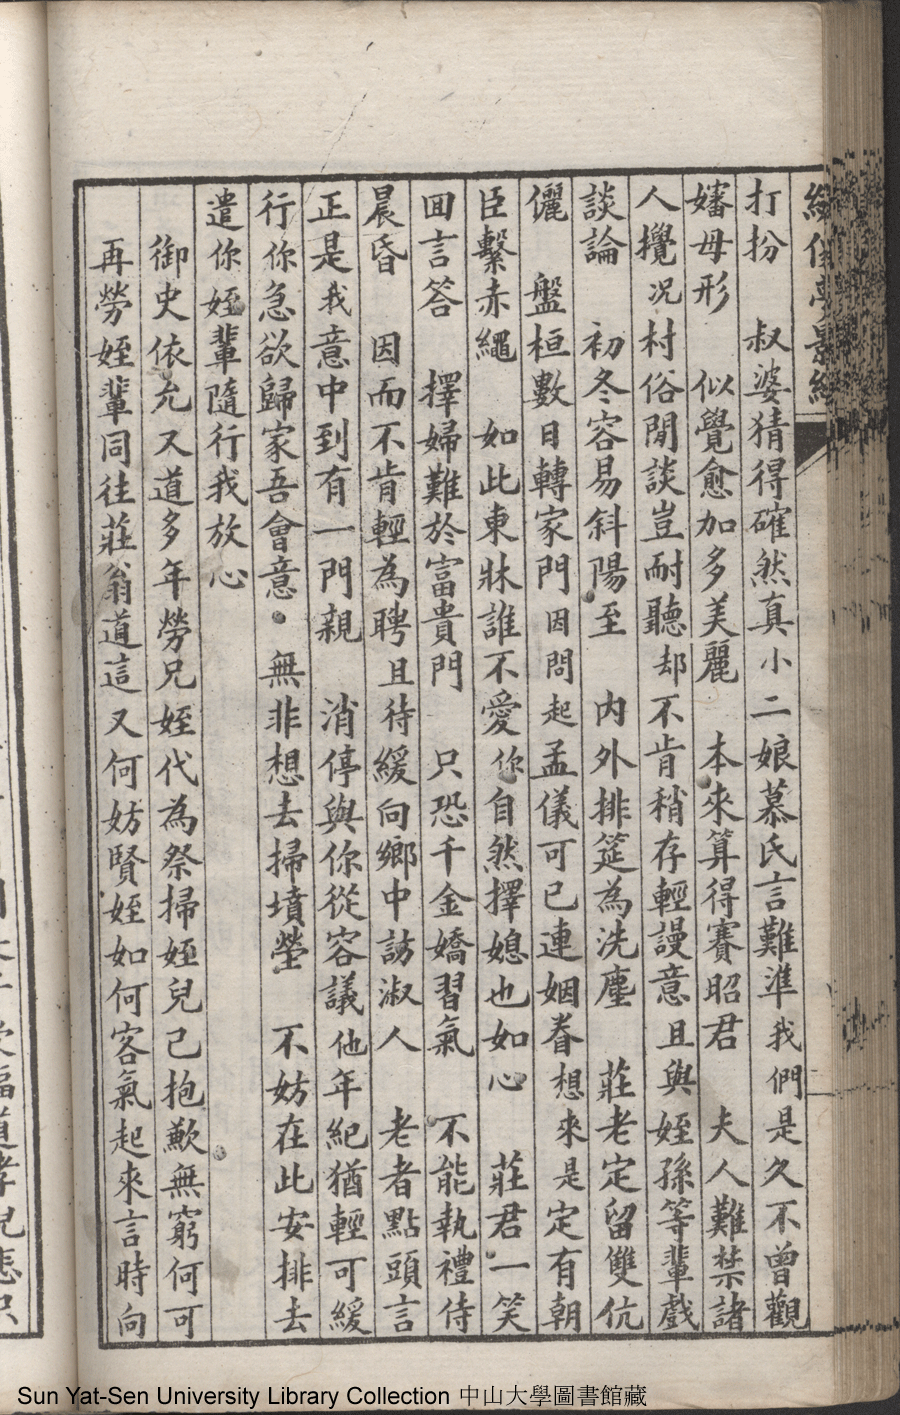 打扮　叔婆猜得確然真小二娘慕氏言難準我們是久不曾觀
嬸母形　似覺愈加多美麗　本來算得賽昭君　夫人難禁諸
人攪况村俗閒談豈耐聽却不肯稍存輕謾意且與姪孫等輩戲
談論　初冬容易斜陽至　內外排筵為洗塵　莊老定留雙伉
儷　盤桓數日轉家門因問起孟儀可已連姻眷想來是定有朝
臣繫赤繩　如此東牀誰不愛你自然擇媳也如心　莊君一笑
囬言答　擇婦難於富貴門　只恐千金嬌習氣　不能執禮侍
晨昏　因而不肯輕為聘且待緩向鄉中訪淑人　老者點頭言
正是我意中到有一門親　消停與你從容議他年紀猶輕可緩
行你急欲歸家吾會意・無非想去掃墳塋　不妨在此安排去
遣你姪輩隨行我放心
御史依允又道多年勞兄姪代為祭掃姪兒已抱歉無窮何可
再勞姪輩同往莊翁道這又何妨賢姪如何客氣起來言時向
Sun Yat-Sen University Library Collection 中山大學圖書館藏